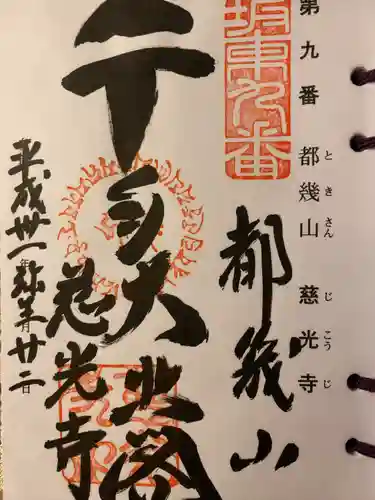 第九番 都幾山 慈光寺
ときさん じこうじ
坂東九番
都幾山
千手大悲閣
慈光寺
平成卅一年弥生月廿二日